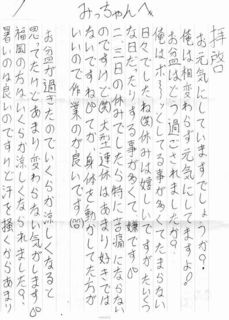 みっちゃんへ
拝啓
お元気にしていますでしょうか?
俺は相変わらず元気にしてますよ!
お盆はどう過ごされましたか?
俺はボーッとしてる事が多くてたまらない
日々でしたね 休みは嬉しいですがたいくつ
な日だったりする事が多くて嫌です
二、三日の休みでしたら特に苦痛にならない
のですけど 大型連休はあまり好きでは
ないですねでしてか身体を動かしてた方が
いいので作業のが良いです(笑)
お盆が過ぎたのでいくらか涼しくなると
思ってたけどあまり変わらない気がします
福岡の方はいくらか涼しくなられました?
暑いのは良いのですけど汗を掻くからあまり